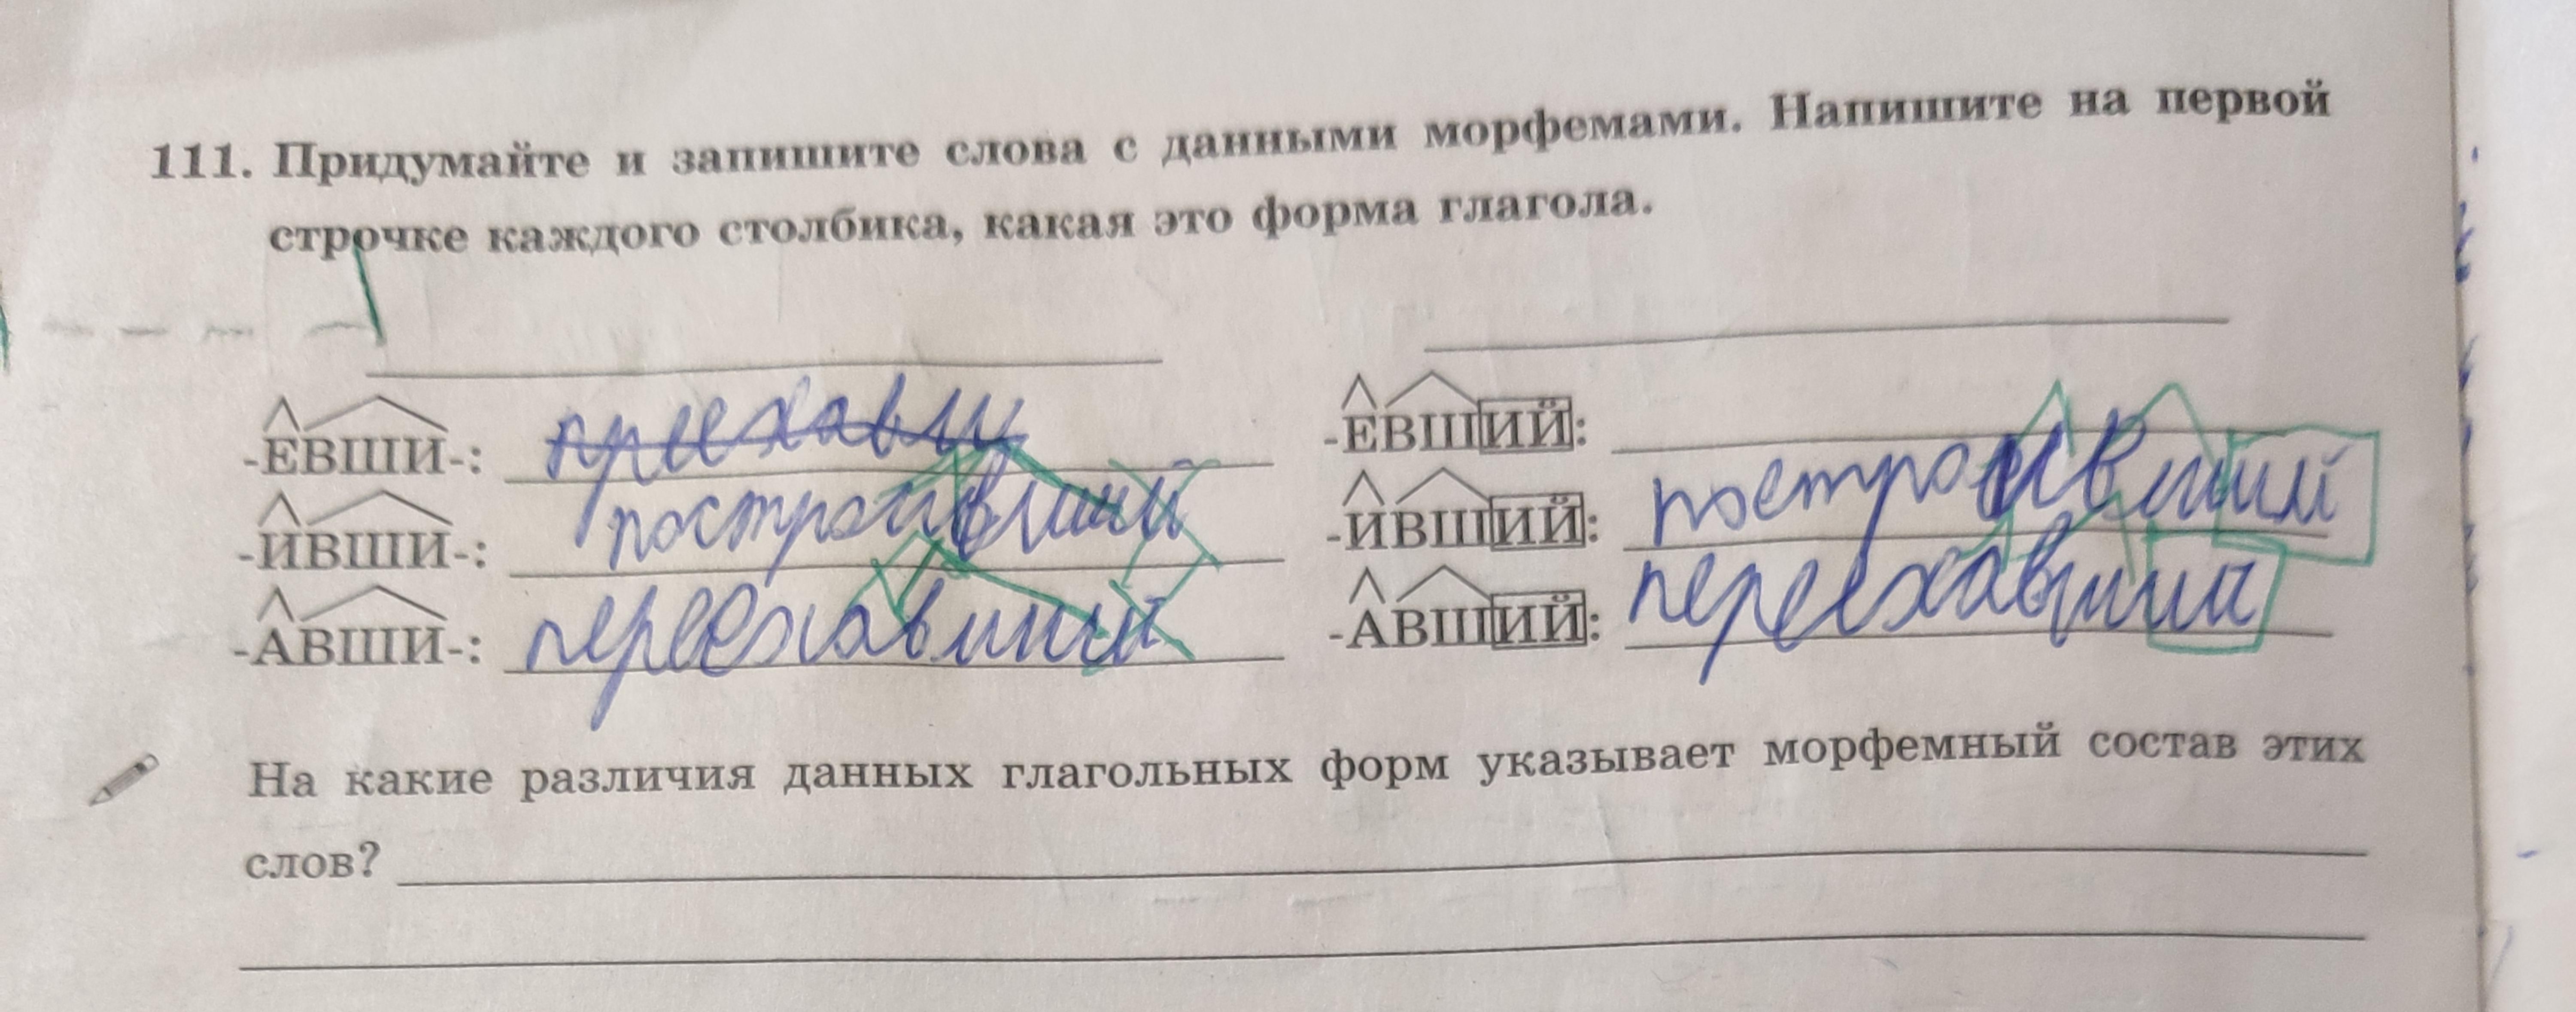 111. Придумайте и запишите слова с данными морфемами. Напишите на первой
строчке каждого столбика, какая это форма глагола.
-ЕВШИ-: приехавши
-ИВШИ-: построивший
-АВШИ-: переехавший
-ЕВШИЙ:
-ИВШИЙ: построивший
-АВШИЙ: переехавший
На какие различия данных глагольных форм указывает морфемный состав этих
слов?